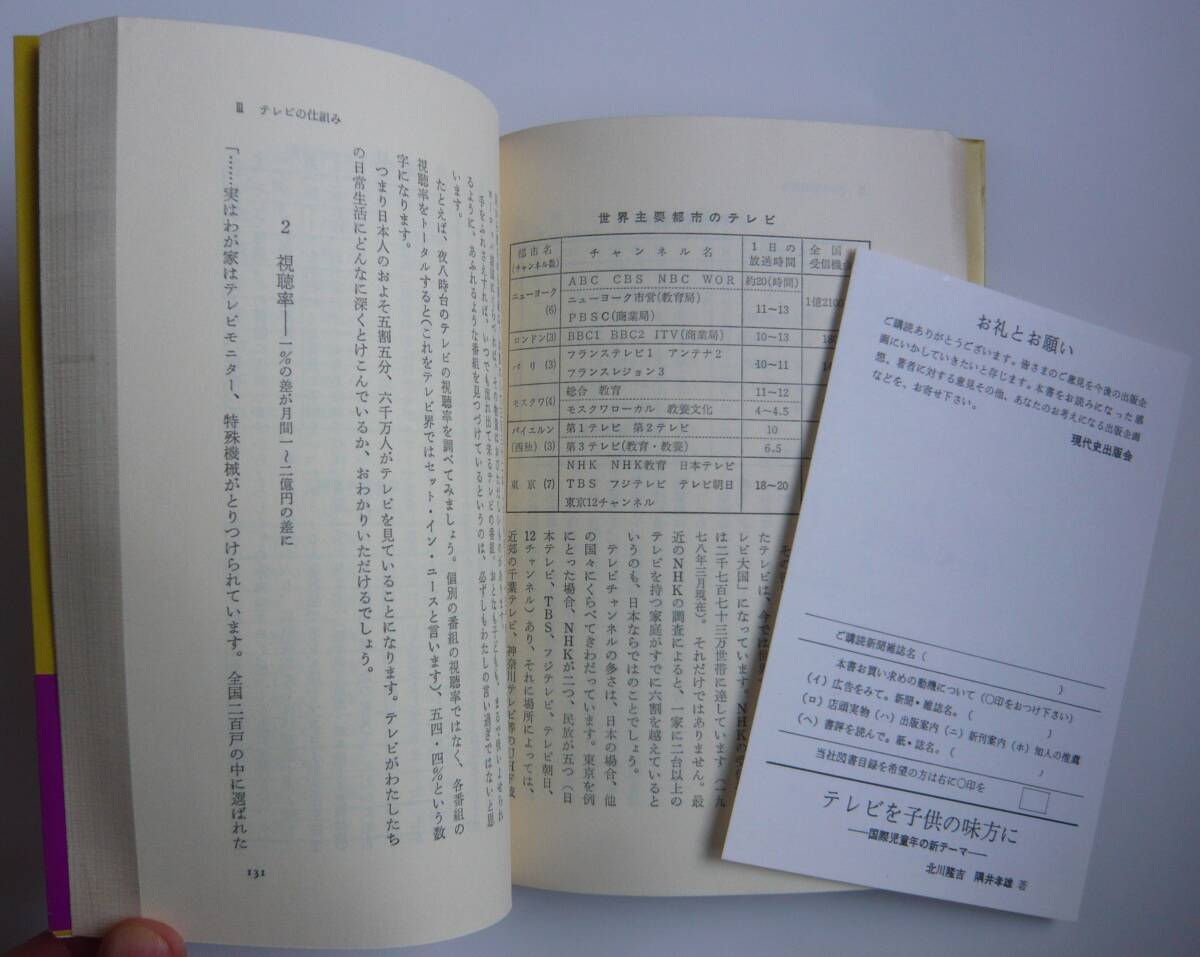 世界主要都市のテレビ
都市名 チャンネル名 1日の 全国
(チャンネル数) 放送時間 受信機
ABC CBS NBC WOR 約20(時間)
ニューヨーク ニューヨーク市営(教育局) 1億2100
(6) PBSC(商業局) 11〜13
ロンドン(3) BBC1 BBC2 ITV(商業局) 10〜13
パリ(3) フランステレビ1 アンテナ2 10〜11
フランスレジョン3
モスクワ(4) 総合 教育 11〜12
モスクワローカル 教養文化 4〜4.5
バイエルン 第1テレビ 第2テレビ 10
(西独)(3) 第3テレビ(教育・教養) 6.5
NHK NHK教育 日本テレビ
東京(7) TBS フジテレビ テレビ朝日 18〜20
東京12チャンネル
たテレビは、今では
レビ大国」になっています。NHKの
は二千七百七十三万世帯に達しています（一九
七八年三月現在）。それだけではありません。最
近のNHKの調査によると、一家に二台以上の
テレビを持つ家庭がすでに六割を越えていると
いうのも、日本ならではのことでしょう。
テレビチャンネルの多さは、日本の場合、他
の国々にくらべてきわだっています。東京を例
にとった場合、NHKが二つ、民放が五つ（日
本テレビ、TBS、フジテレビ、テレビ朝日、
12チャンネル）あり、それに場所によっては、
近郊の千葉テレビ、神奈川テレビ等のUHF
Ⅲ テレビの仕組み
手をふれさえすれば、いつでも流れ出て来るテレビの番組。おとなも子どもも、まるで
るように、あふれるような番組を見つづけているというのは、必ずしもわたしの言い過ぎではないと思
います。
たとえば、夜八時台のテレビの視聴率を調べてみましょう。個別の番組の視聴率ではなく、各番組の
視聴率をトータルすると（これをテレビ界ではセット・イン・ユースと言います）、五四・四％という数
字になります。
つまり日本人のおよそ五割五分、六千万人がテレビを見ていることになります。テレビがわたしたち
の日常生活にどんなに深くとけこんでいるか、おわかりいただけるでしょう。
2 視聴率――一％の差が月間一〜二億円の差に
「……実はわが家はテレビモニター、特殊機械がとりつけられています。全国二百戸の中に選ばれた
131
お礼とお願い
ご購読ありがとうございます。皆さまのご意見を今後の出版企
画にいかしていきたいと存じます。本書をお読みになった感
想、著者に対する意見その他、あなたのお考えになる出版企画
などを、お寄せ下さい。
現代史出版会
ご購読新聞雑誌名（ ）
本書お買い求めの動機について（○印をおつけ下さい）
（イ）広告をみて。新聞・雑誌名。（ ）
（ロ）店頭実物（ハ）出版案内（ニ）新刊案内（ホ）知人の推薦
（ヘ）書評を読んで。紙・誌名。（ ）
当社図書目録を希望の方は右に○印を
テレビを子供の味方に
――国際児童年の新テーマ――
北川隆吉 隅井孝雄 著